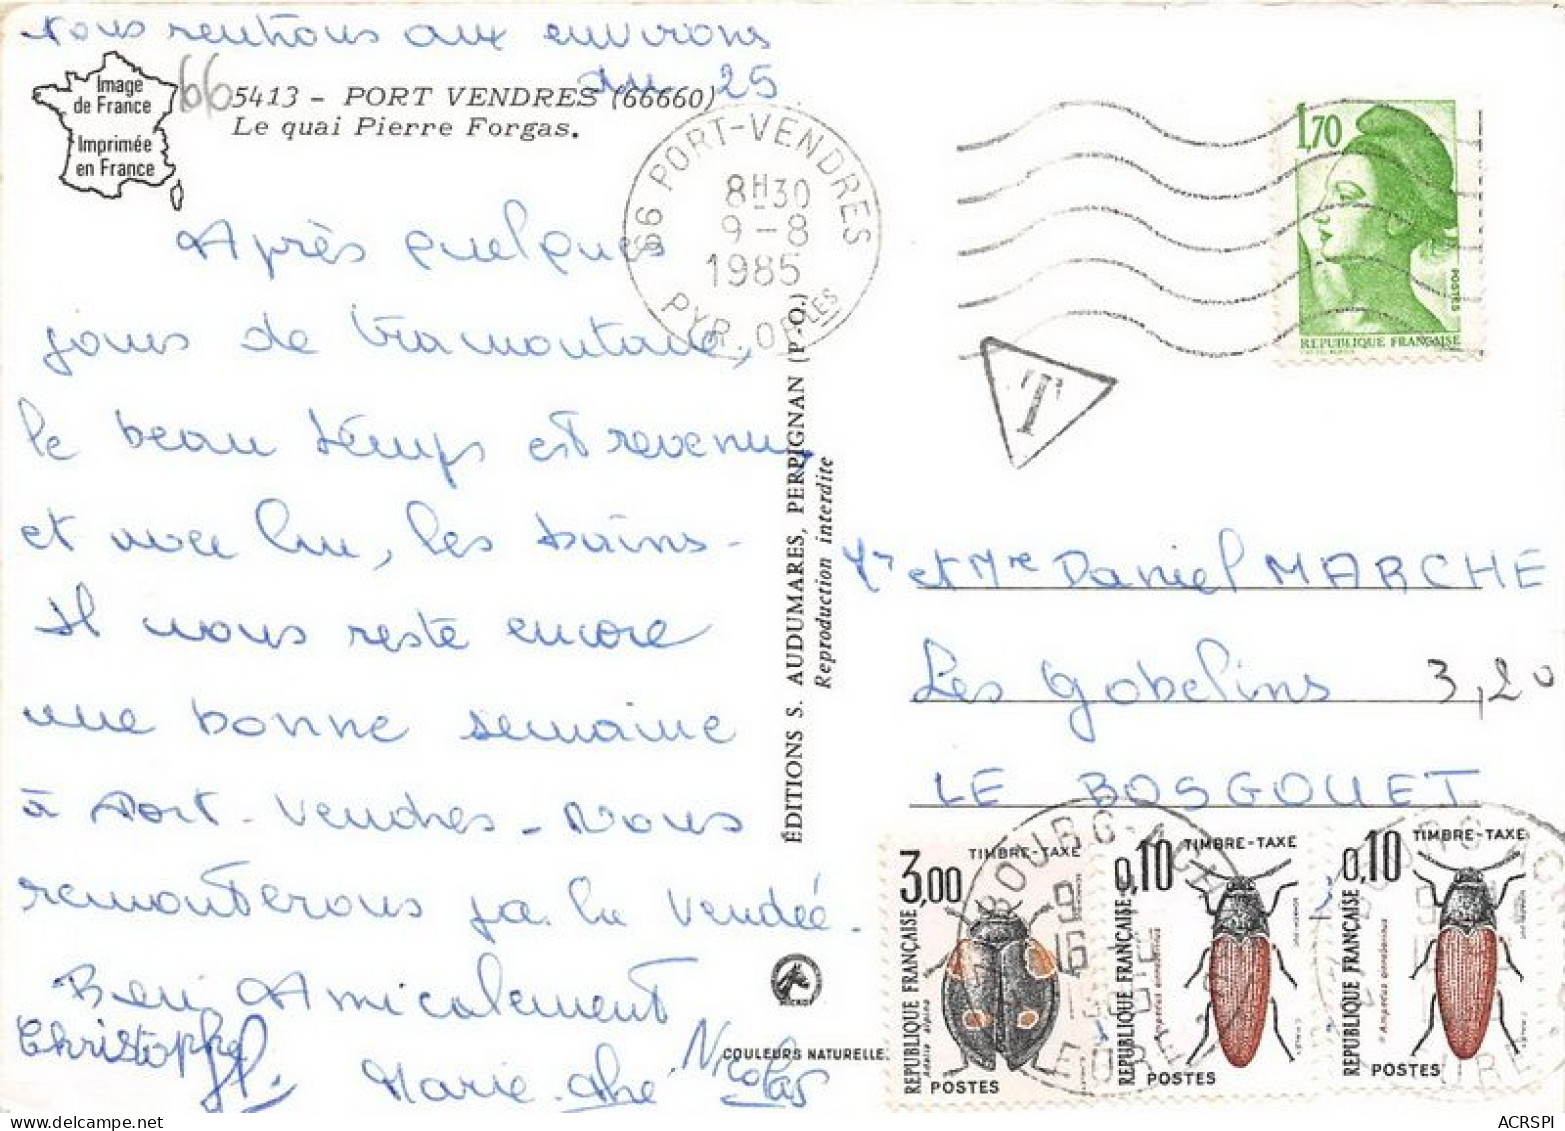 Nous rentrons aux environs
du 25
Image
de France
Imprimée
en France
66
5413 - PORT VENDRES (66660)
Le quai Pierre Forgas.
66 PORT-VENDRES
8H30
9-8
1985
PYR. OR LES
1,70
POSTES
REPUBLIQUE FRANÇAISE
T
Après quelques
jours de tramontane,
le beau temps est revenu
et avec lui, les bains.
Il nous reste encore
une bonne semaine
à Port-Vendres. Nous
remonterons par la Vendée.
Bien Amicalement
Christophe
JP.
Marie-
Nicolas
ÉDITIONS S. AUDUMARES, PERPIGNAN (P.-O.)
Reproduction interdite
COULEURS NATURELLES
Mr et Mme Daniel MARCHE
Les Gobelins
3,20
LE BOSGOUET
3,00
TIMBRE-TAXE
RÉPUBLIQUE FRANÇAISE
adalia alpina
POSTES
0,10
TIMBRE-TAXE
RÉPUBLIQUE FRANÇAISE
Ampedus cinnabarinus
POSTES
0,10
TIMBRE-TAXE
RÉPUBLIQUE FRANÇAISE
Ampedus cinnabarinus
POSTES
BOURG-ACH
EURE
ACRSPI